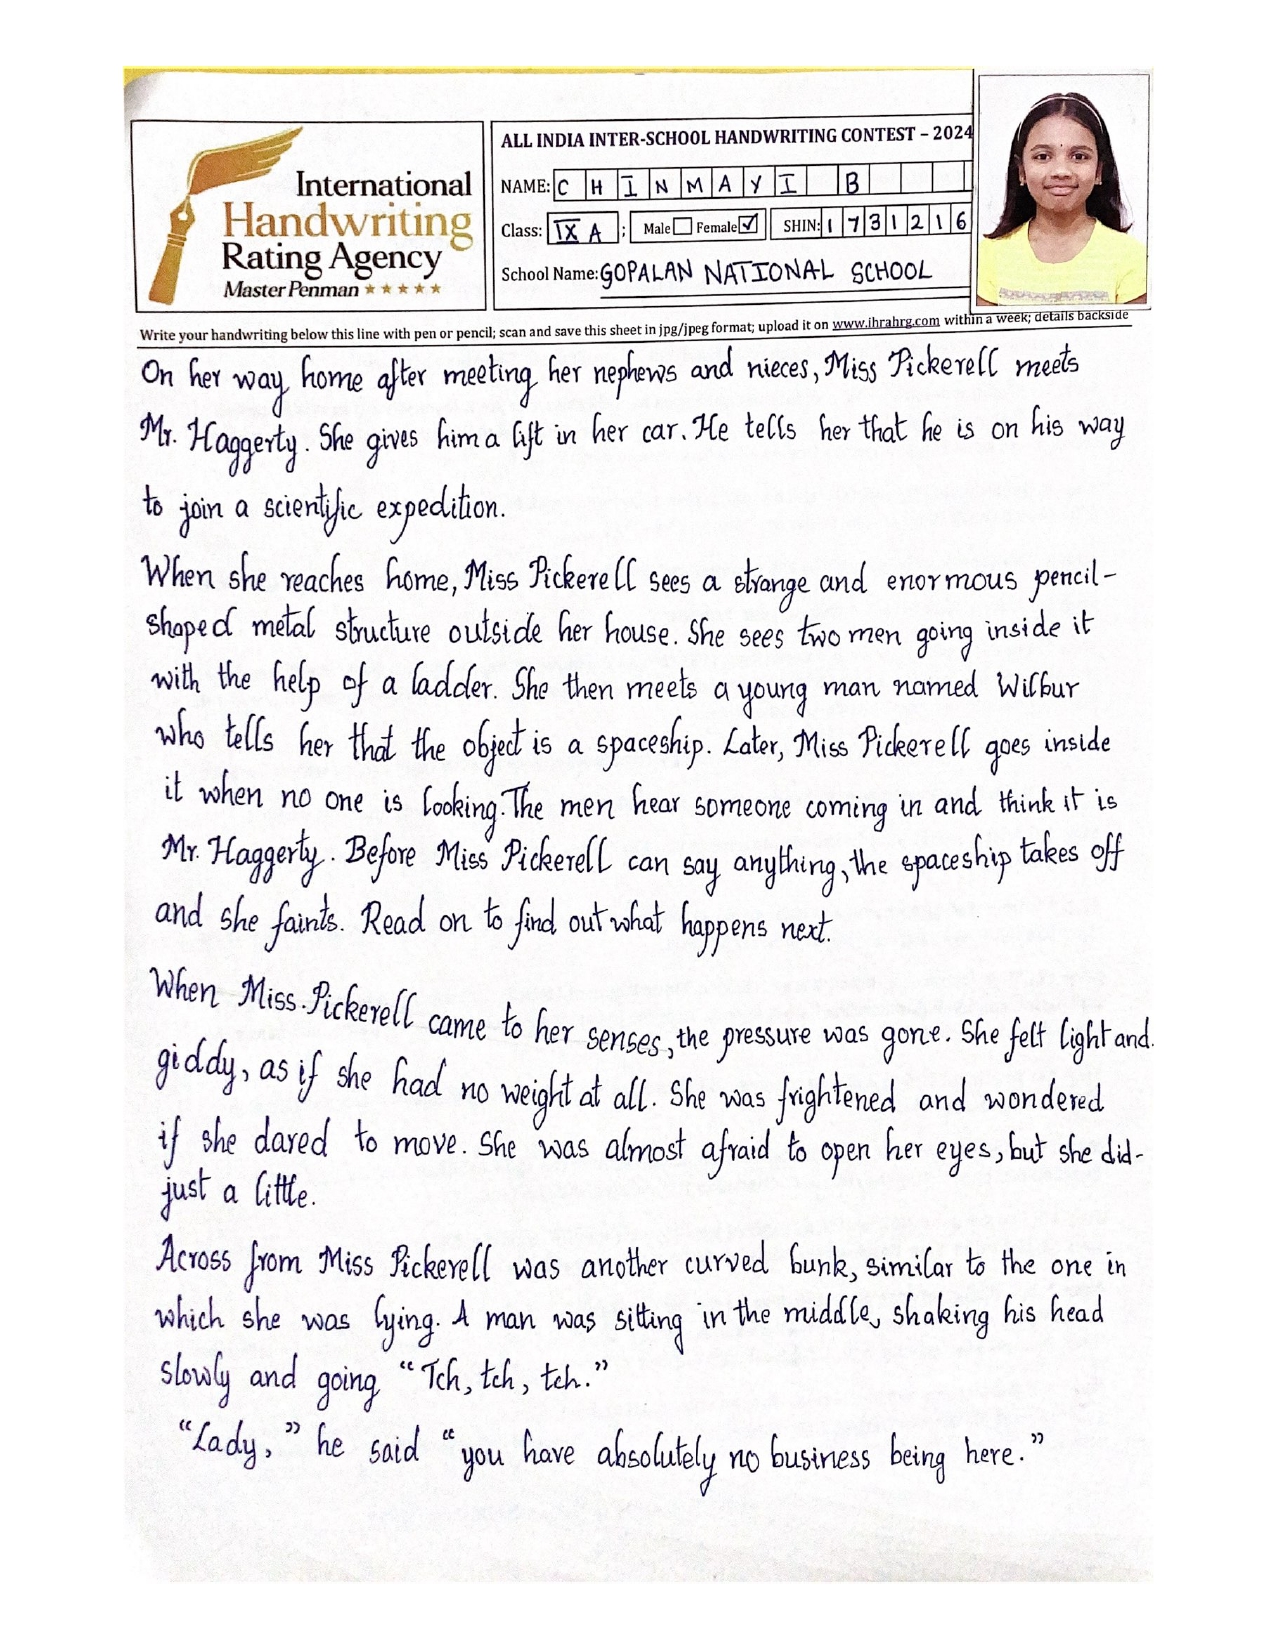 International
Handwriting
Rating Agency
Master Penman ★★★★★
ALL INDIA INTER-SCHOOL HANDWRITING CONTEST – 2024
NAME: CHINMAYI B
Class: IX A ; Male Female ✓ SHIN: 1731216
School Name: GOPALAN NATIONAL SCHOOL
Write your handwriting below this line with pen or pencil; scan and save this sheet in jpg/jpeg format; upload it on www.ihrahrg.com within a week; details backside
On her way home after meeting her nephews and nieces, Miss Pickerell meets
Mr. Haggerty. She gives him a lift in her car. He tells her that he is on his way
to join a scientific expedition.
When she reaches home, Miss Pickerell sees a strange and enormous pencil-
shaped metal structure outside her house. She sees two men going inside it
with the help of a ladder. She then meets a young man named Wilbur
who tells her that the object is a spaceship. Later, Miss Pickerell goes inside
it when no one is looking. The men hear someone coming in and think it is
Mr. Haggerty. Before Miss Pickerell can say anything, the spaceship takes off
and she faints. Read on to find out what happens next.
When Miss. Pickerell came to her senses, the pressure was gone. She felt light and.
giddy, as if she had no weight at all. She was frightened and wondered
if she dared to move. She was almost afraid to open her eyes, but she did-
just a little.
Across from Miss Pickerell was another curved bunk, similar to the one in
which she was lying. A man was sitting in the middle, shaking his head
slowly and going “Tch, tch, tch.”
“Lady,” he said “you have absolutely no business being here.”